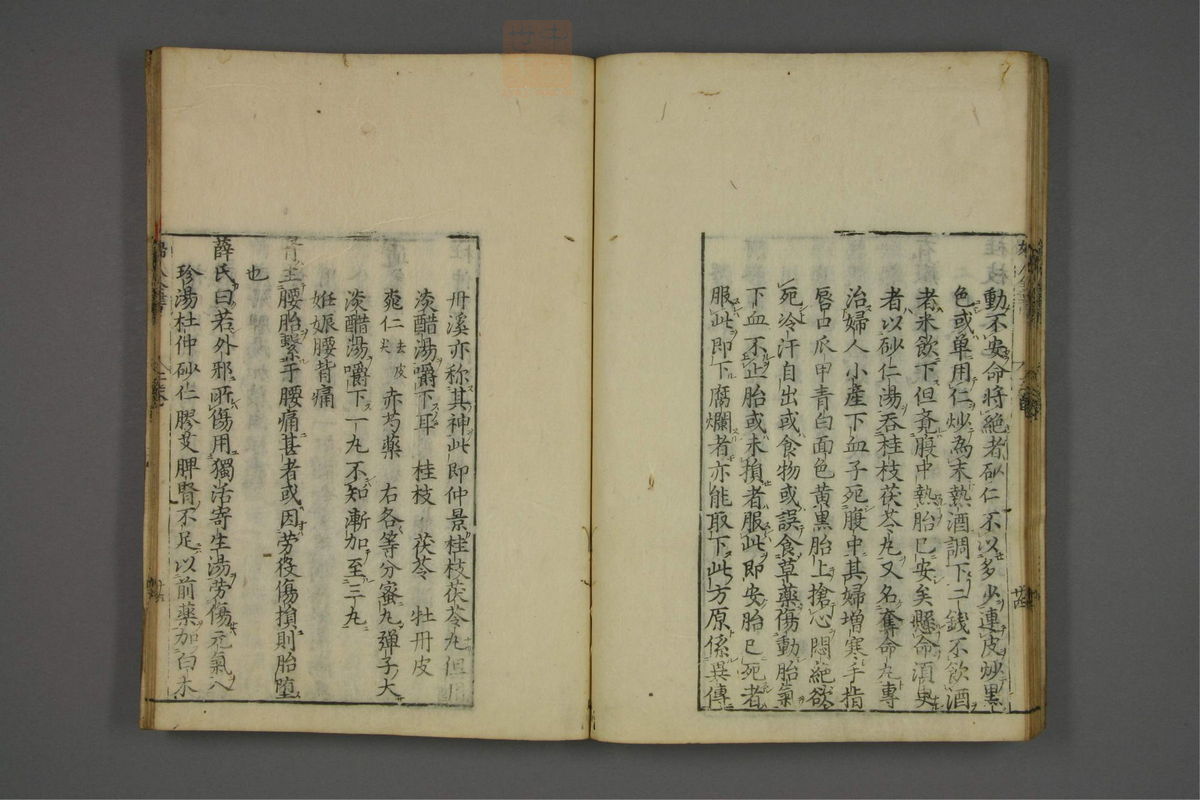 動不安命將絕者砂仁不以多少連皮炒黒
色或单用仁炒為末熱酒調下二錢不飲酒
者米飲下但覺腹中熱胎已安矣懸命湏臾
者以砂仁湯吞桂枝茯苓丸又名奪命丸專
治婦人小產下血子死腹中其婦增寒手指
唇口爪甲青白面色黄黒胎上搶心悶絕欲
死冷汗自出或食物或誤食草藥傷動胎氣
下血不止胎或未損者服此即安胎已死者
服此即下腐爛者亦能取下此方原係異傳
廿四
冊溪亦称其神此即仲景桂枝茯苓丸但用
淡醋湯嚼下耳 桂枝 茯苓 牡冊皮
桃仁去皮尖 赤芍藥 右各等分蜜丸彈子大
淡醋湯嚼下一丸不知漸加至三丸
妊娠腰背痛
腎主腰胎繫于腰痛甚者或因劳役傷損則胎墮
也
薛氏曰若外邪所傷用獨活寄生湯劳傷元氣八
珍湯杜仲砂仁膠艾脾腎不足以前藥加白朮